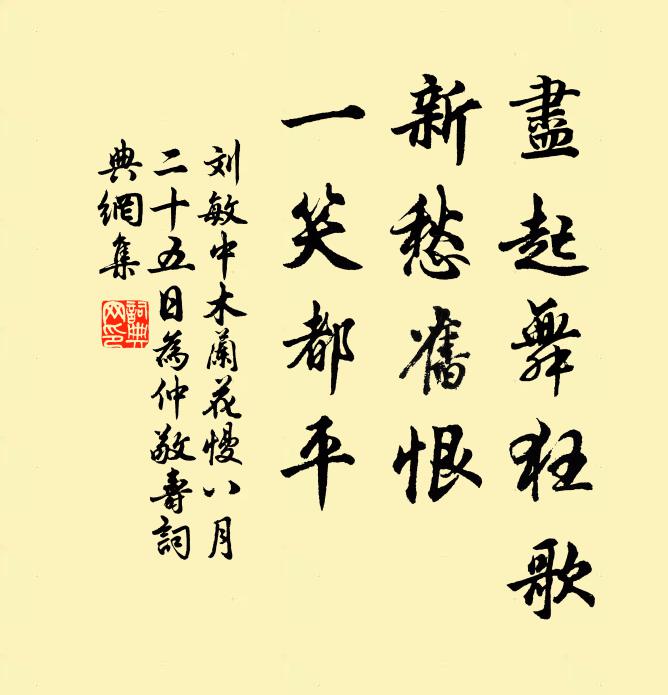 盡起舞狂歌
新愁舊恨
一笑都平
刘敏中木蘭花慢八月
二十五日為仲敬壽詞
典網集
詞典
网印